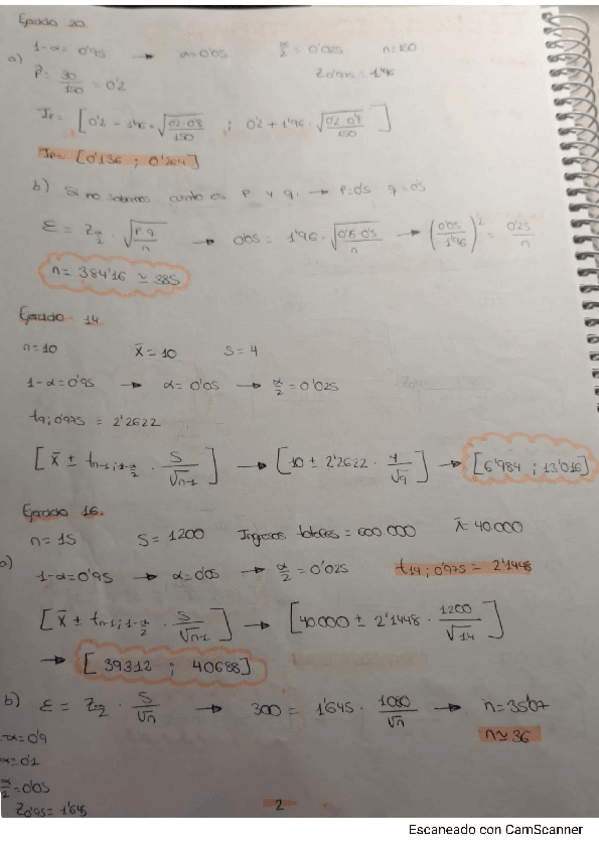 Ejercicio 20.
1-α= 0'95 → α=0'05 α/2 = 0'025 n=150
a) p̂= 30/150 = 0'2 Z0'975 = 1'96
Ip= [0'2 - 1'96·√(0'2·0'8/150) ; 0'2 + 1'96·√(0'2·0'8/150)]
Ip= [0'136 ; 0'264]
b) Si no sabemos cuanto es P y q → P=0'5 q=0'5
ε = Zα/2 · √(p q/n) → 0'05 = 1'96·√(0'5·0'5/n) → (0'05/1'96)² = 0'25/n
n= 384'16 ≃ 385
Ejercicio 14.
n=10 x̄=10 S=4
1-α=0'95 → α= 0'05 → α/2 = 0'025
t9;0'975 = 2'2622
[x̄ ± tn-1;1-α/2 · S/√n-1] → [10 ± 2'2622 · 4/√9] → [6'984 ; 13'016]
Ejercicio 16.
n=15 S=1200 Ingresos totales = 600 000 x̄=40000
a) 1-α=0'95 → α=0'05 → α/2 = 0'025 t14;0'975 = 2'1448
[x̄ ± tn-1;1-α/2 · S/√n-1] → [40000 ± 2'1448 · 1200/√14]
→ [39312 ; 40688]
b) ε = Zα/2 · S/√n → 300 = 1'645 · 1080/√n → n=35'07
-α=0'9 n≃36
α=0'1
α/2 =0'05
Z0'95= 1'645
2
Escaneado con CamScanner